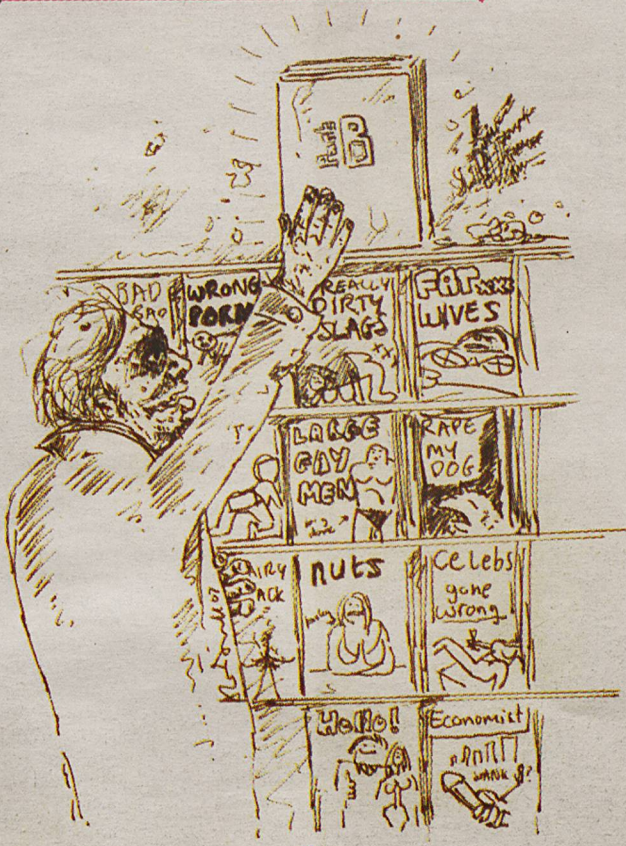 B
BAD
BAD
WRONG
PORN
REALLY
DIRTY
SLAGS
FAT xxx
WIVES
T
LARGE
GAY
MEN
RAPE
MY
DOG
AIRY
ACK
nuts
Celebs
gone
wrong
Hello!
Economist
WANK